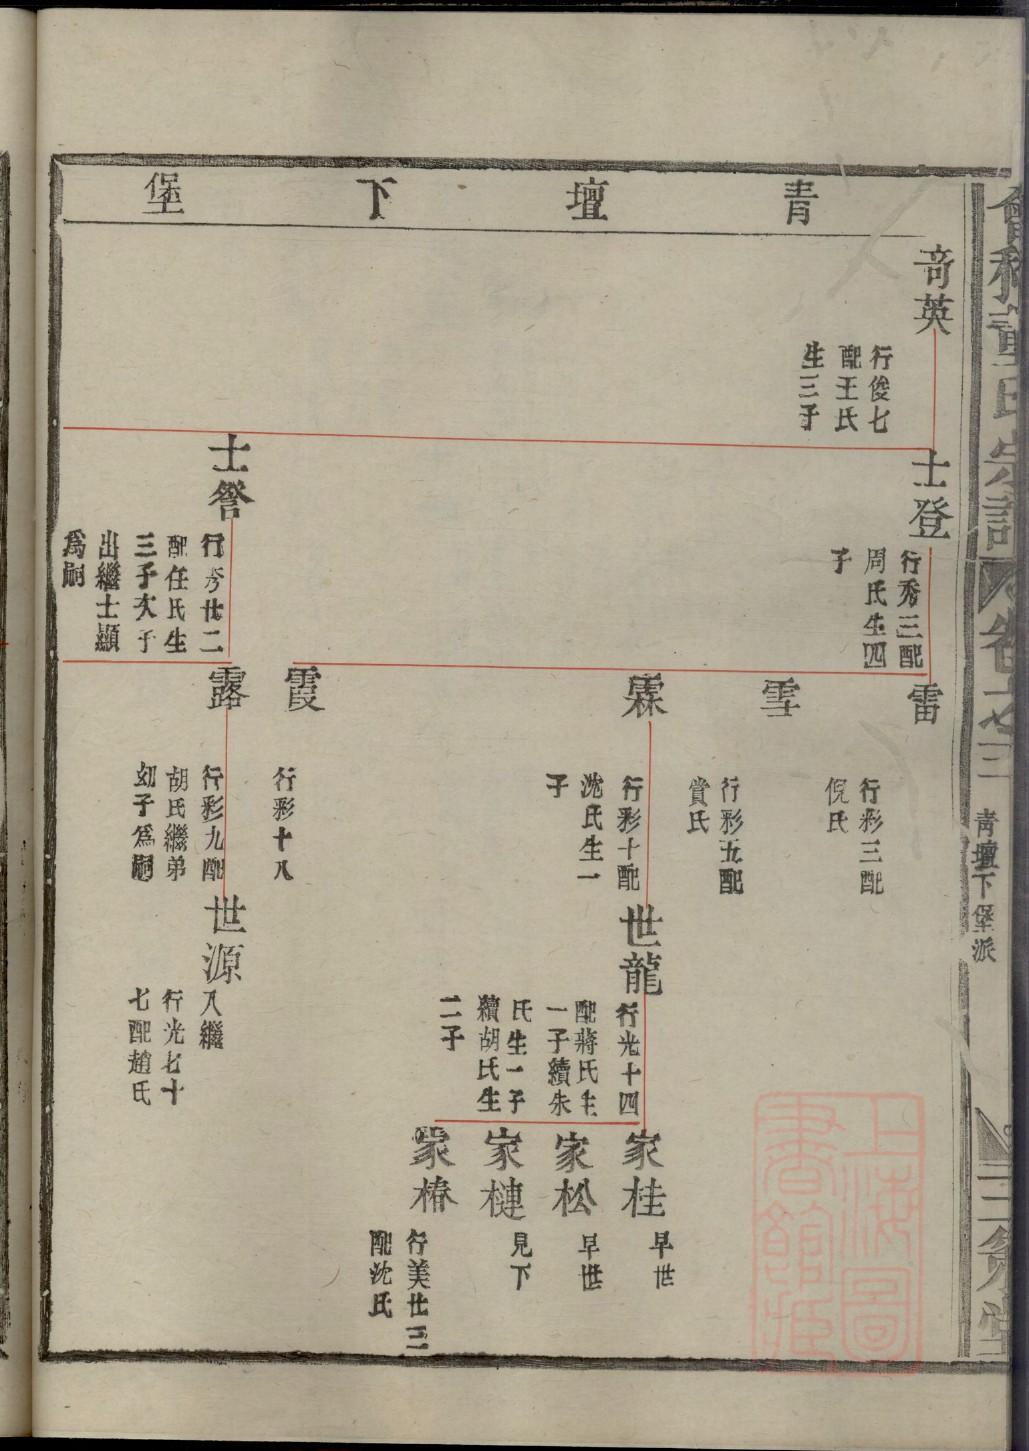 青壇下堡
奇英
行俊七
配王氏
生三子
士登
行秀三配
周氏生四
子
士詧
行秀廿二
配任氏生
三子次子
出繼士顯
為嗣
雷
行彩三配
倪氏
雪
行彩五配
賞氏
霖
行彩十配
沈氏生一
子
霞
行彩十八
露
行彩九配
胡氏繼弟
幼子為嗣
世龍
行光十四
配蔣氏生
一子續朱
氏生一子
續胡氏生
二子
世源
入繼
行光七十
七配趙氏
家桂
早世
家松
早世
家槤
見下
家椿
行美廿三
配沈氏
會稽董氏宗譜
卷十七
三
青壇下堡派
上海圖書館藏